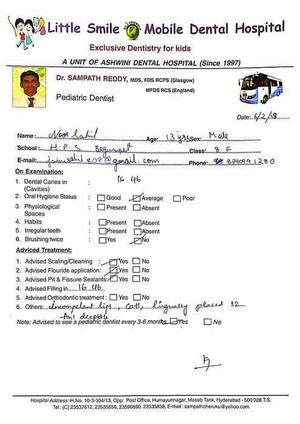 Little Smile Mobile Dental Hospital
Exclusive Dentistry for kids
A UNIT OF ASHWINI DENTAL HOSPITAL (Since 1997)
Dr. SAMPATH REDDY, MDS, FDS RCPS (Glasgow)
MFDS RCS (England)
Pediatric Dentist
Date: 6/2/18
Name: Sahil Age: 13 yrs Sex: Male
School: H.P.S Begumpet Class: 8 F
E-mail: @gmail.com Phone:
On Examination:
1. Dental Caries in : 16 46
(Cavities)
2. Oral Hygiene Status : Good Average Poor
3. Physiological : Present Absent
Spaces
4. Habits : Present Absent
5. Irregular teeth : Present Absent
6. Brushing twice : Yes No
Adviced Treatment:
1. Advised Scaling/Cleaning : Yes No
2. Advised Flouride application: Yes No
3. Advised Pit & Fissure Sealants: Yes No
4. Advised Filling in 16 46
5. Advised Orthodontic treatment : Yes No
6. Others: Incompetent lips, lingually placed 32
Note: Advised to see a pediatric dentist every 3-6 months Yes No
Hospital Address: H.No. 10-3-304/13, Opp. Post Office, Humayunnagar, Masab Tank, Hyderabad - 500 028 T.S.
Tel: (C) 23537612, 23535656, 23590690, 23535858, E-mail : sampathcheruku@yahoo.com